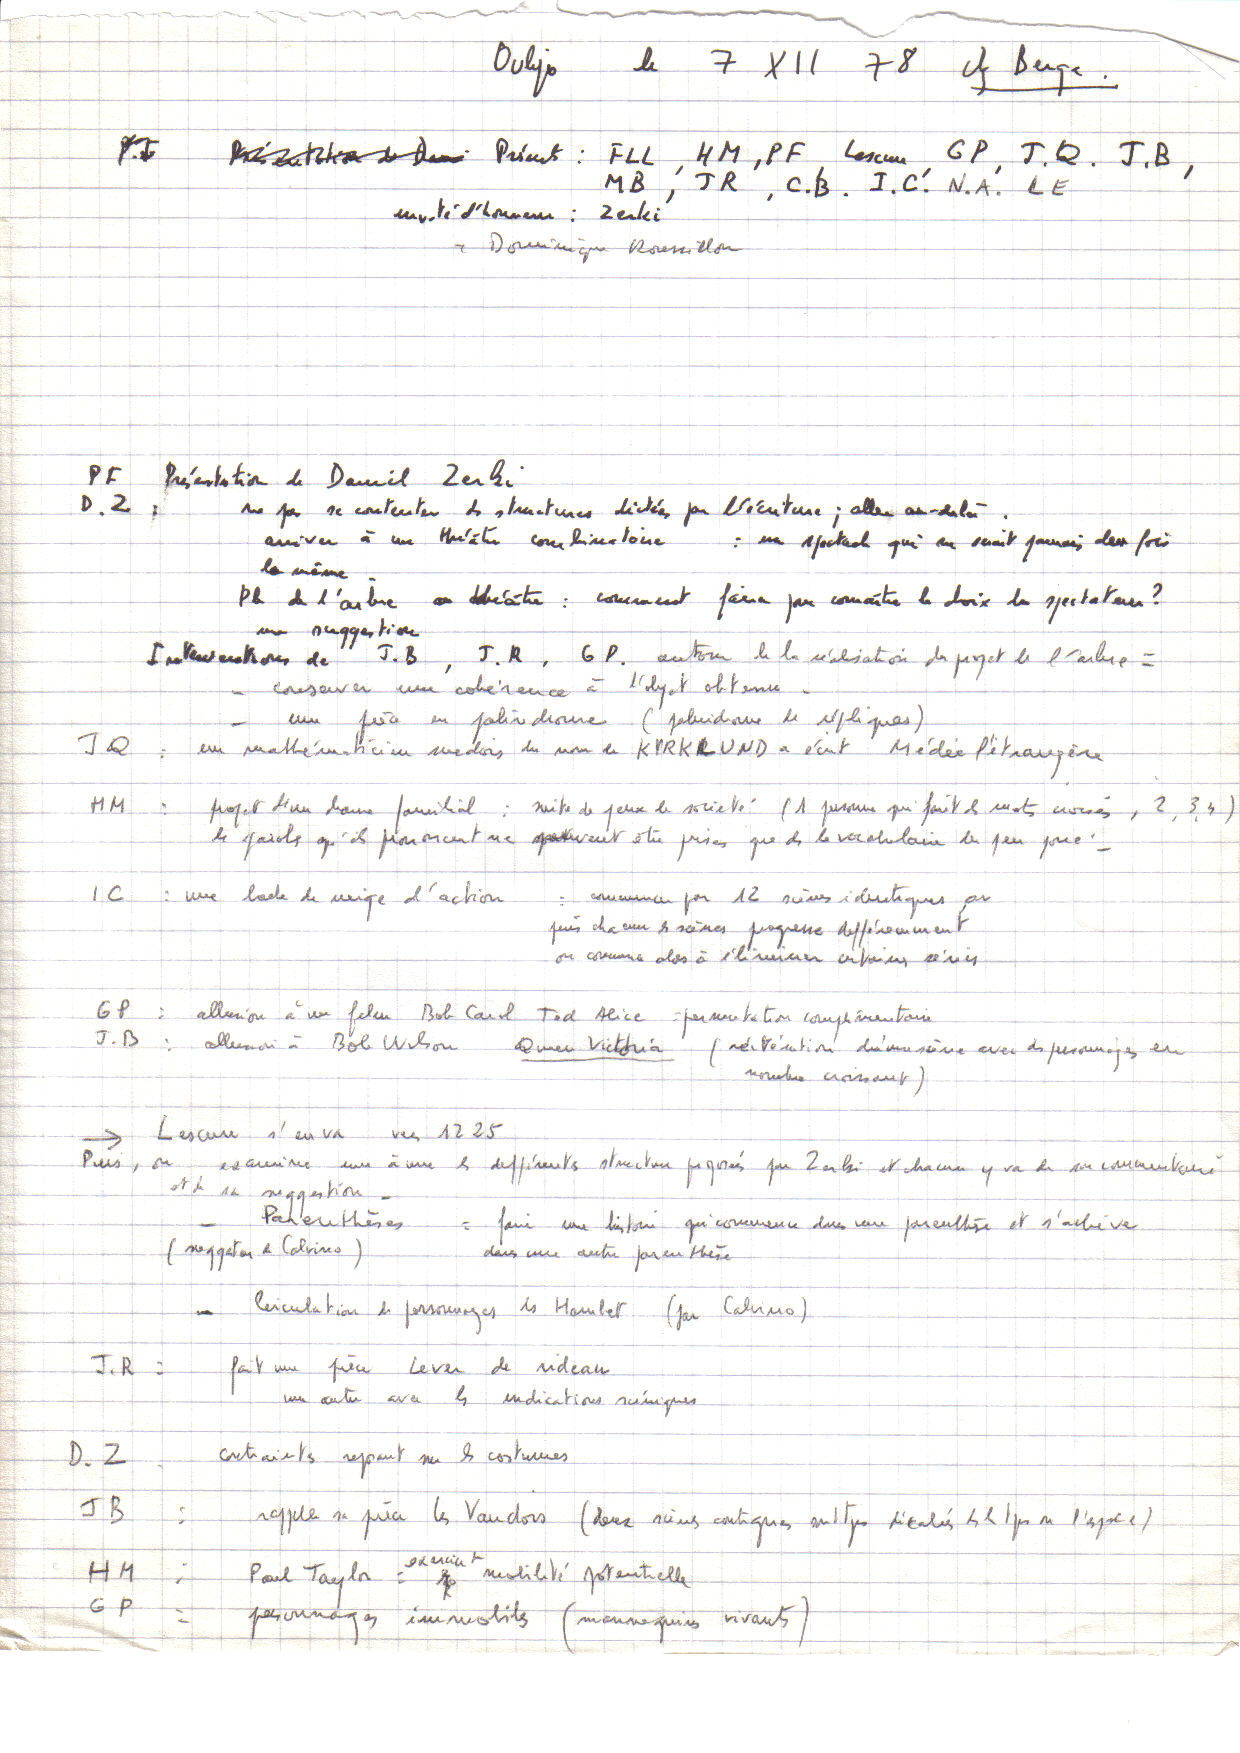 Oulipo le 7 XII 78 ch Berge.
P.F Présentation de Dani Présent : FLL, HM, PF, Lescure, GP, J.Q. J.B,
MB, JR, C.B. I.C. N.A. LE
invité d'honneur : Zerki
= Dominique Roussillon
PF Présentation de Daniel Zerki
D.Z : ne pas se contenter ds structures dictées par l'écriture ; aller au-delà.
arriver à un théâtre combinatoire : un spectacle qui ne serait jamais deux fois
le même.
Pb de l'arbre au théâtre : comment faire pour connaître le choix du spectateur ?
une suggestion
Interventions de J.B, J.R, GP. autour de la réalisation du projet de l'arbre =
- conserver une cohérence à l'objet obtenu -
- une pièce en palindrome (palindrome de répliques)
JQ : un mathématicien suédois du nom de KIRKLUND a écrit Médée l'étrangère
HM : projet d'un drame familial : suite de jeux de société (1 personne qui fait ds mots croisés, 2, 3, 4)
les paroles qu'ils prononcent ne peuvent être prises que ds le vocabulaire du jeu joué -
IC : une boule de neige d'action : commencer par 12 scènes identiques
puis chacune ds scènes progresse différemment
on commence alors à éliminer certaines séries
GP : allusion à un film Bob Carol Ted Alice = permutation complémentaire
J.B : allusion à Bob Wilson Queen Victoria (réitération d'une scène avec ds personnages en
nombre croissant)
→ Lescure s'en va vers 12 25
Puis, on examine une à une ls différents structures proposées par Zerki et chacun y va de son commentaire
et de sa suggestion -
- Parenthèses = faire une histoire qui commence dans une parenthèse et s'achève
(suggestion de Calvino) dans une autre parenthèse
- Circulation de personnages ds Hamlet (par Calvino)
J.R = fait une pièce Lever de rideau
une autre avec ls indications scéniques
D.Z contraintes reposant sur ls costumes
JB : rappelle sa pièce les Vaudois (deux scènes contigues mltps décalés ds le tps ou l'espace)
HM : Paul Taylor = exercice mobilité potentielle
GP = personnages immobiles (mannequins vivants)